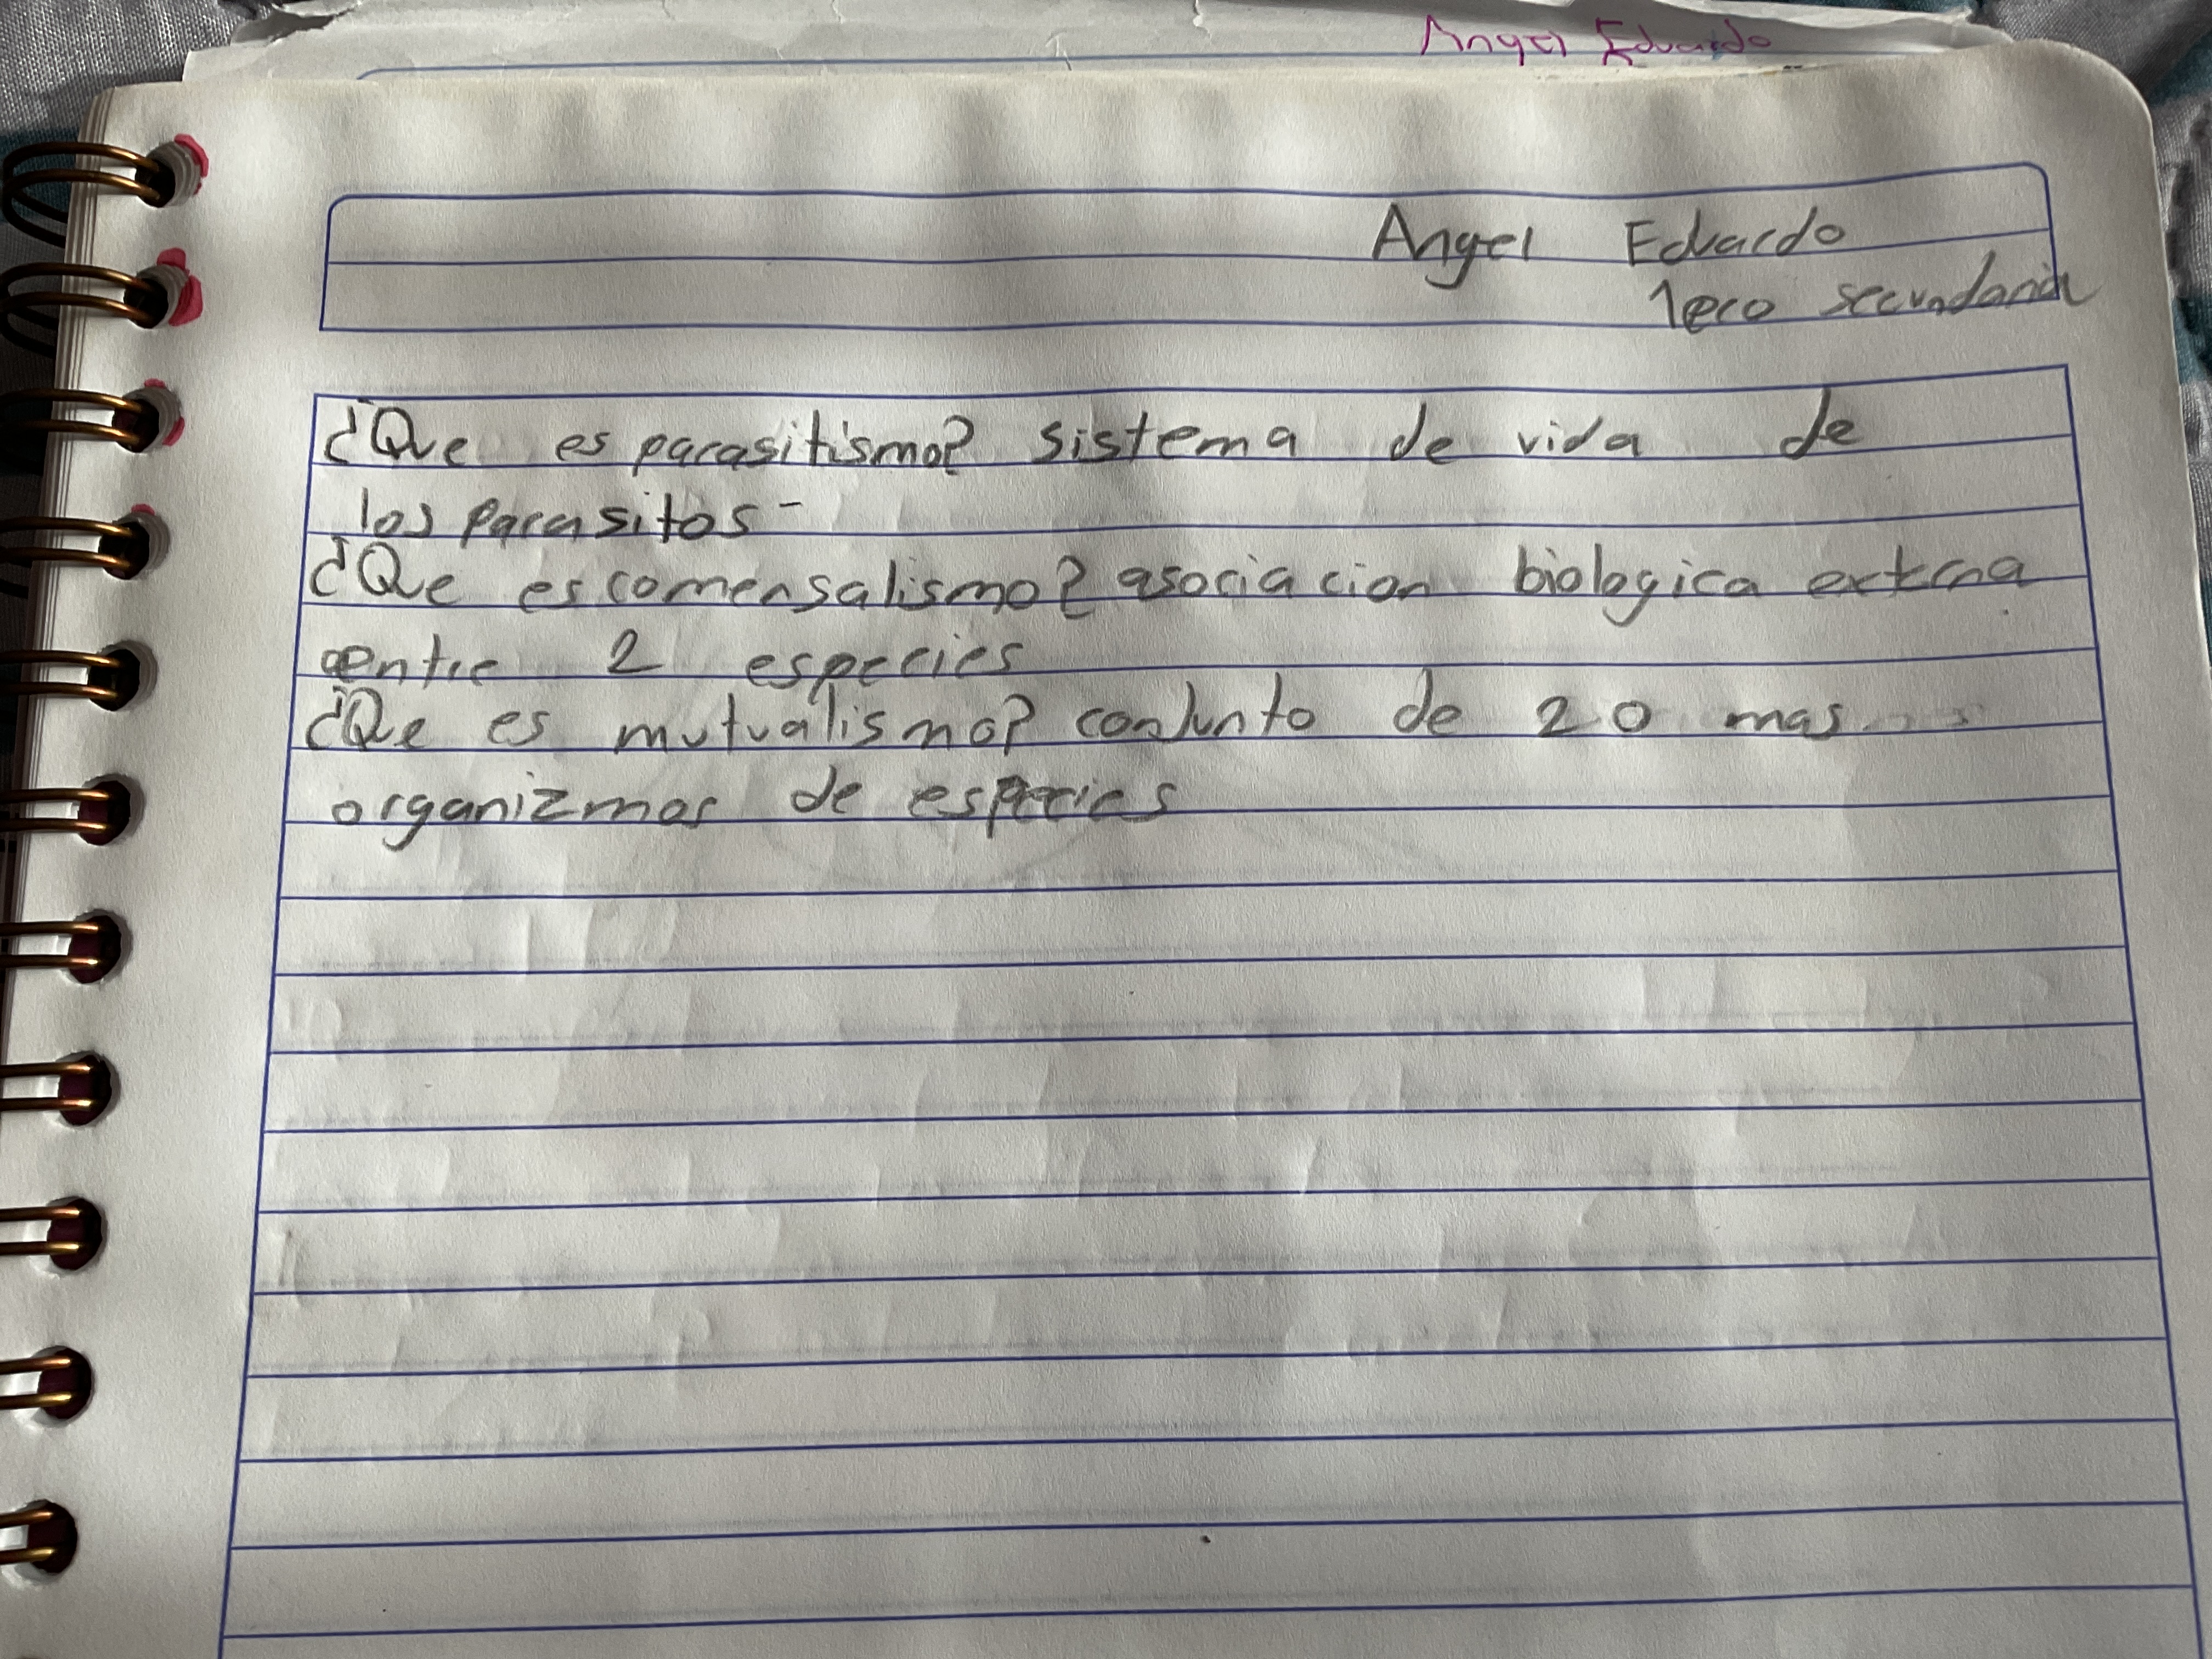 Angel Eduardo
Angel Eduardo
1ero secundaria
¿Que es parasitismo? sistema de vida de
los parasitos-
¿Que es comensalismo? asociacion biologica externa
entre 2 especies
¿Que es mutualismo? conjunto de 2 o mas
organizmos de especies